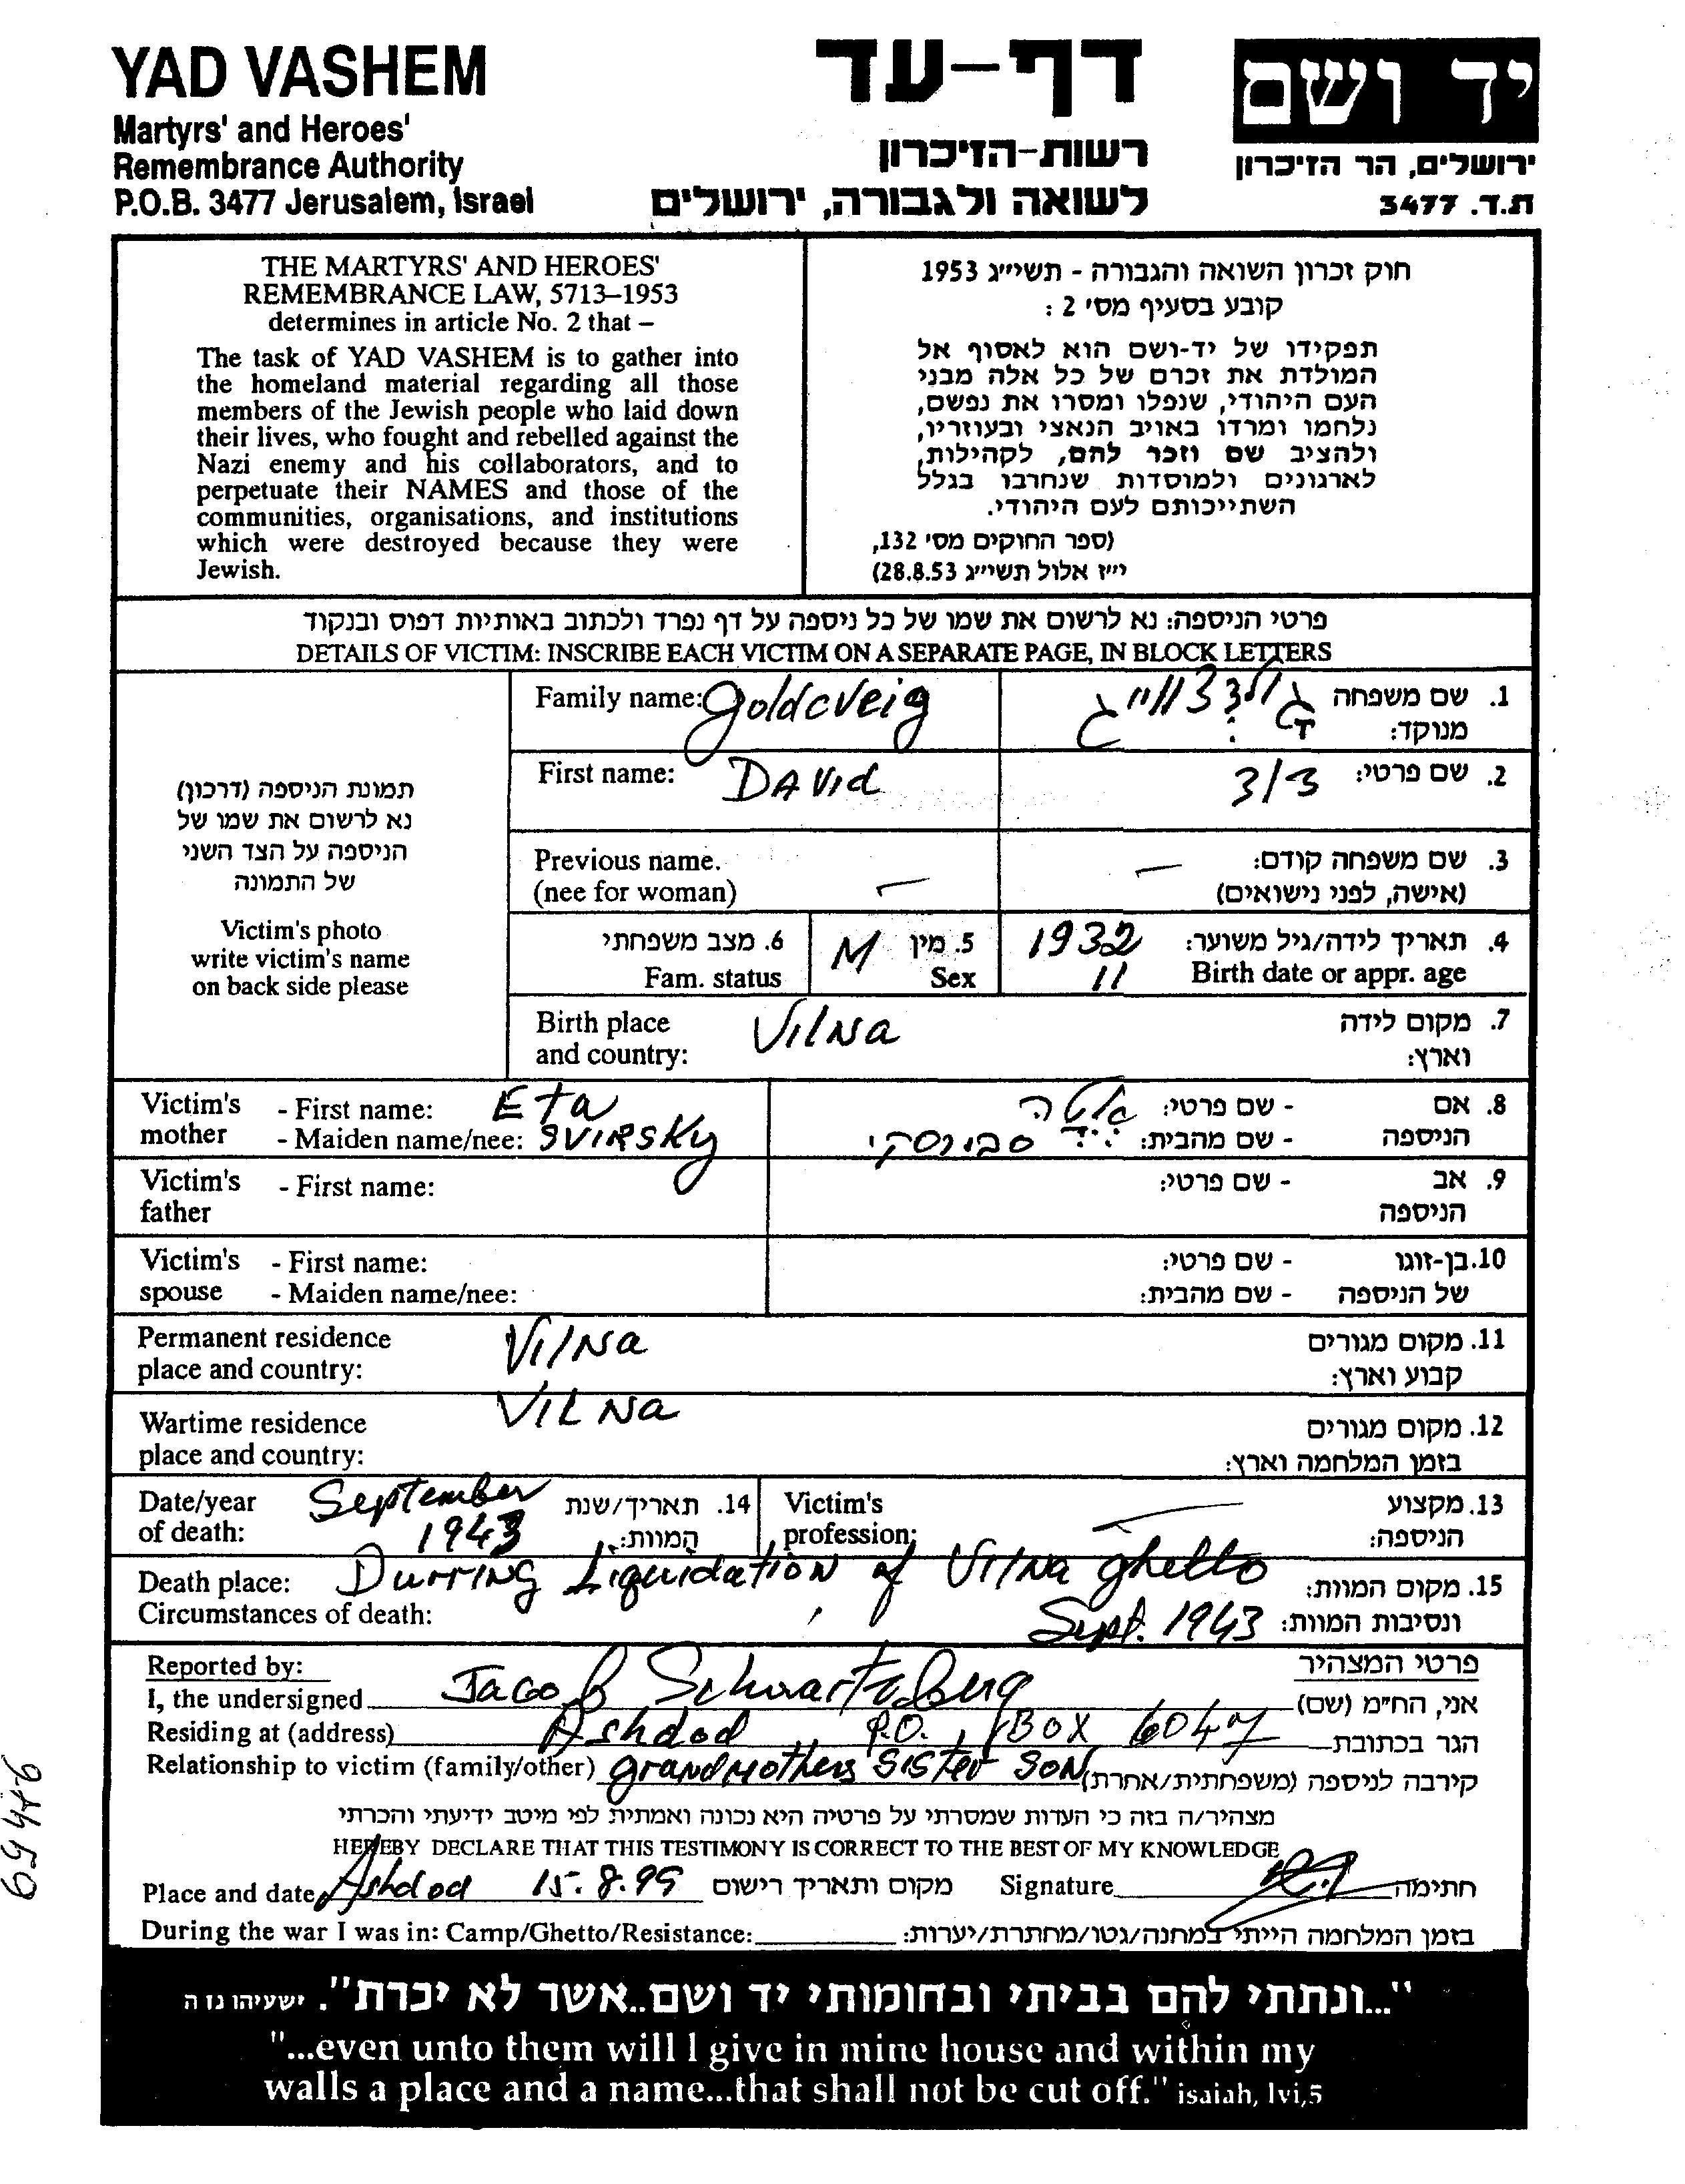 YAD VASHEM
Martyrs' and Heroes'
Remembrance Authority
P.O.B. 3477 Jerusalem, Israel
דף-עד
רשות-הזיכרון
לשואה ולגבורה, ירושלים
יד ושם
ירושלים, הר הזיכרון
ת.ד. 3477
THE MARTYRS' AND HEROES'
REMEMBRANCE LAW, 5713–1953
determines in article No. 2 that –
The task of YAD VASHEM is to gather into
the homeland material regarding all those
members of the Jewish people who laid down
their lives, who fought and rebelled against the
Nazi enemy and his collaborators, and to
perpetuate their NAMES and those of the
communities, organisations, and institutions
which were destroyed because they were
Jewish.
חוק זכרון השואה והגבורה - תשי״ג 1953
קובע בסעיף מס׳ 2 :
תפקידו של יד-ושם הוא לאסוף אל
המולדת את זכרם של כל אלה מבני
העם היהודי, שנפלו ומסרו את נפשם,
נלחמו ומרדו באויב הנאצי ובעוזריו,
ולהציב שם וזכר להם, לקהילות,
לארגונים ולמוסדות שנחרבו בגלל
השתייכותם לעם היהודי.
(ספר החוקים מס׳ 132,
י״ז אלול תשי״ג 28.8.53)
פרטי הניספה: נא לרשום את שמו של כל ניספה על דף נפרד ולכתוב באותיות דפוס ובנקוד
DETAILS OF VICTIM: INSCRIBE EACH VICTIM ON A SEPARATE PAGE, IN BLOCK LETTERS
תמונת הניספה (דרכון)
נא לרשום את שמו של
הניספה על הצד השני
של התמונה
Victim's photo
write victim's name
on back side please
Family name: Goldcveig
1. שם משפחה
מנוקד:
First name: DAVId
2. שם פרטי: דוד
Previous name.
(nee for woman) —
3. שם משפחה קודם: —
(אישה, לפני נישואים)
6. מצב משפחתי
Fam. status
5. מין M
Sex
4. תאריך לידה/גיל משוער: 1932
Birth date or appr. age 11
Birth place
and country: Vilna
7. מקום לידה
וארץ:
Victim's - First name: Eta
mother - Maiden name/nee: SVIRSKy
8. אם - שם פרטי: אטה
הניספה - שם מהבית: סבירסקי
Victim's - First name:
father
9. אב - שם פרטי:
הניספה
Victim's - First name:
spouse - Maiden name/nee:
10. בן-זוגו - שם פרטי:
של הניספה - שם מהבית:
Permanent residence Vilna
place and country:
11. מקום מגורים
קבוע וארץ:
Wartime residence VILNa
place and country:
12. מקום מגורים
בזמן המלחמה וארץ:
Date/year September
of death: 1943
14. תאריך/שנת
המוות:
Victim's —
profession:
13. מקצוע
הניספה:
Death place: Durring Liquidation of Vilna ghetto
Circumstances of death: Sept. 1943
15. מקום המוות:
ונסיבות המוות:
Reported by:
פרטי המצהיר
I, the undersigned Jacob Schwartzberg אני, הח״מ (שם)
Residing at (address) Ashdod P.O. BOX 6047 הגר בכתובת
Relationship to victim (family/other) grandmothers sister son קירבה לניספה (משפחתית/אחרת)
מצהיר/ה בזה כי העדות שמסרתי על פרטיה היא נכונה ואמתית לפי מיטב ידיעתי והכרתי
HEREBY DECLARE THAT THIS TESTIMONY IS CORRECT TO THE BEST OF MY KNOWLEDGE
Place and date Ashdod 15.8.99 מקום ותאריך רישום Signature חתימה
During the war I was in: Camp/Ghetto/Resistance: בזמן המלחמה הייתי במחנה/גטו/מחתרת/יערות:
"...ונתתי להם בביתי ובחומותי יד ושם..אשר לא יכרת". ישעיהו נו ה
"...even unto them will I give in mine house and within my
walls a place and a name...that shall not be cut off." isaiah, lvi,5
69446